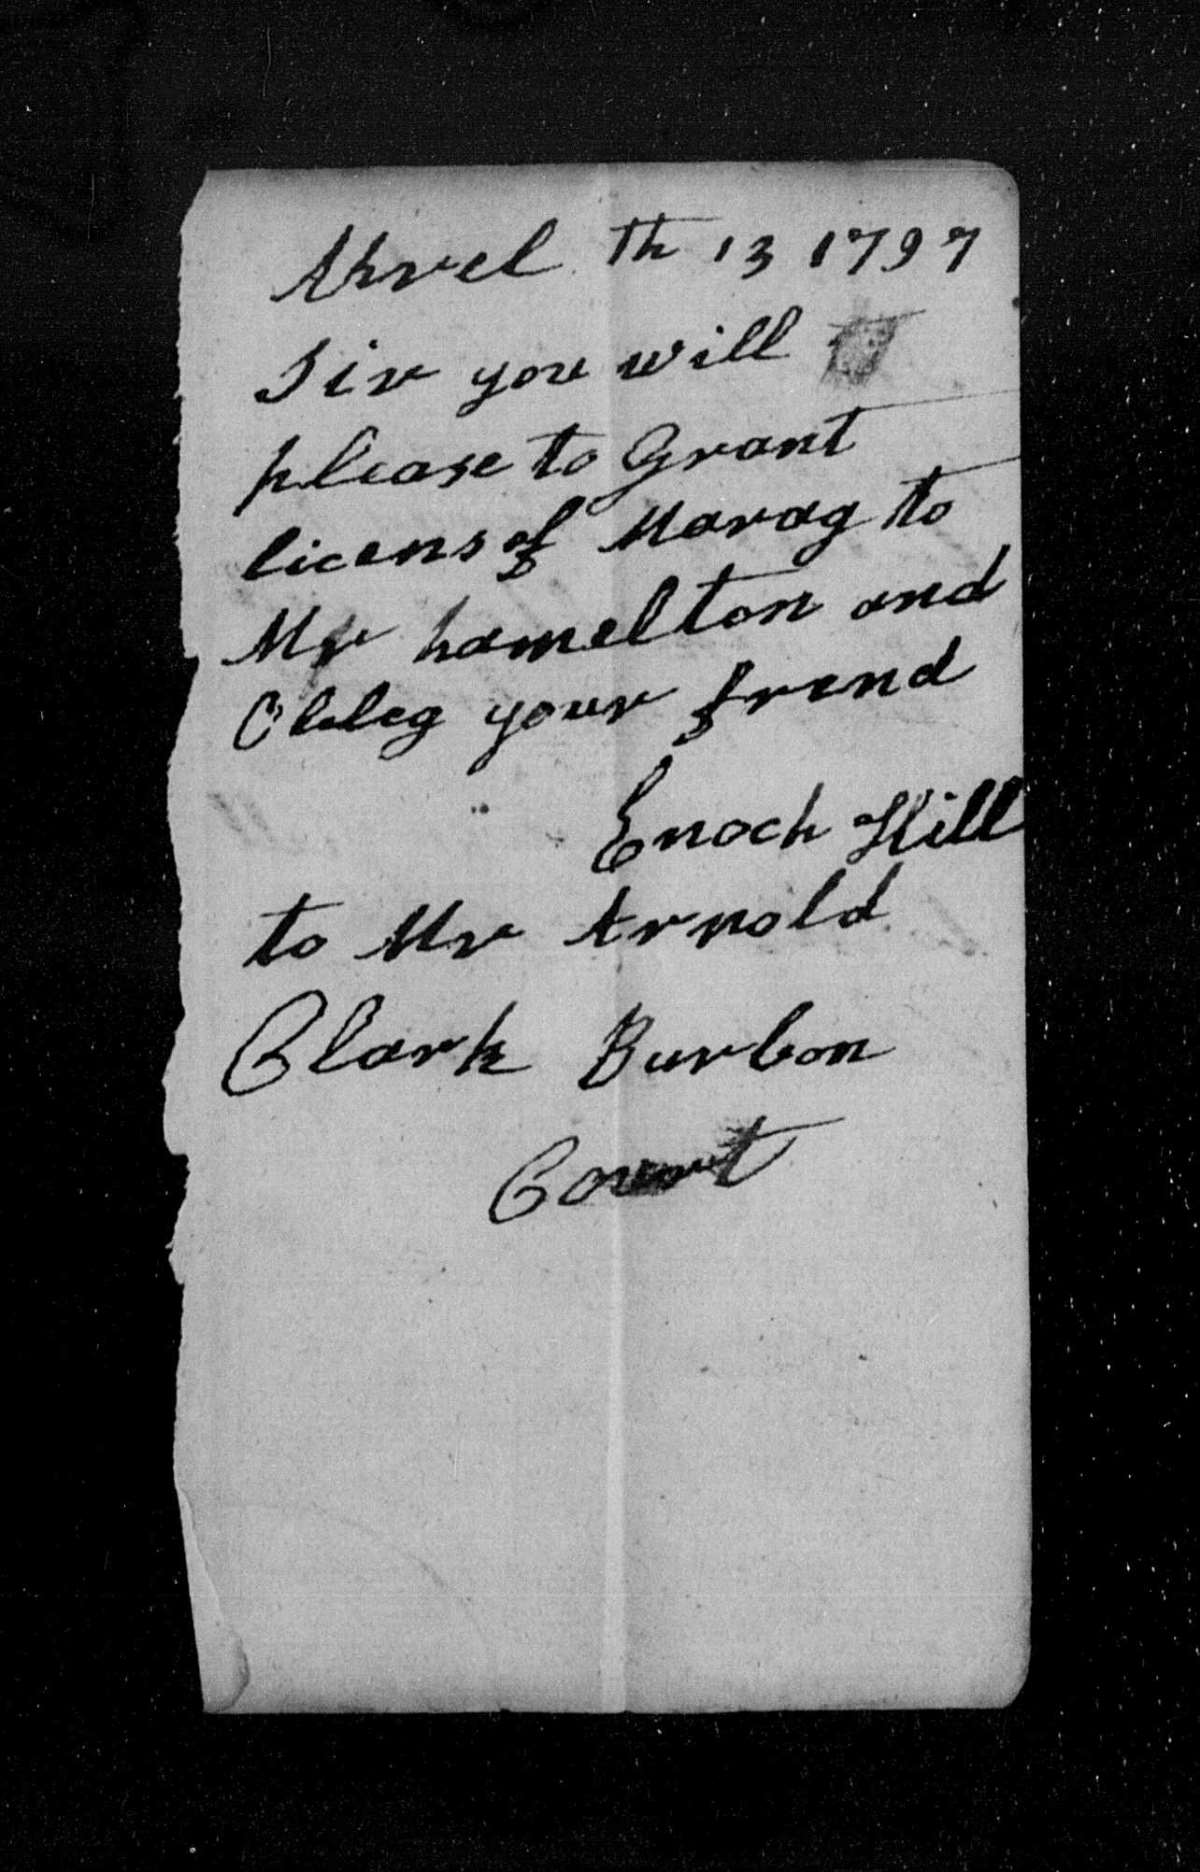 Aprel th 13 1797
Sir you will
please to Grant
licens of Marag to
Mr hamelton and
Obleg your frend
Enoch Hill
to Mr Arnold
Clark Burbon
Court